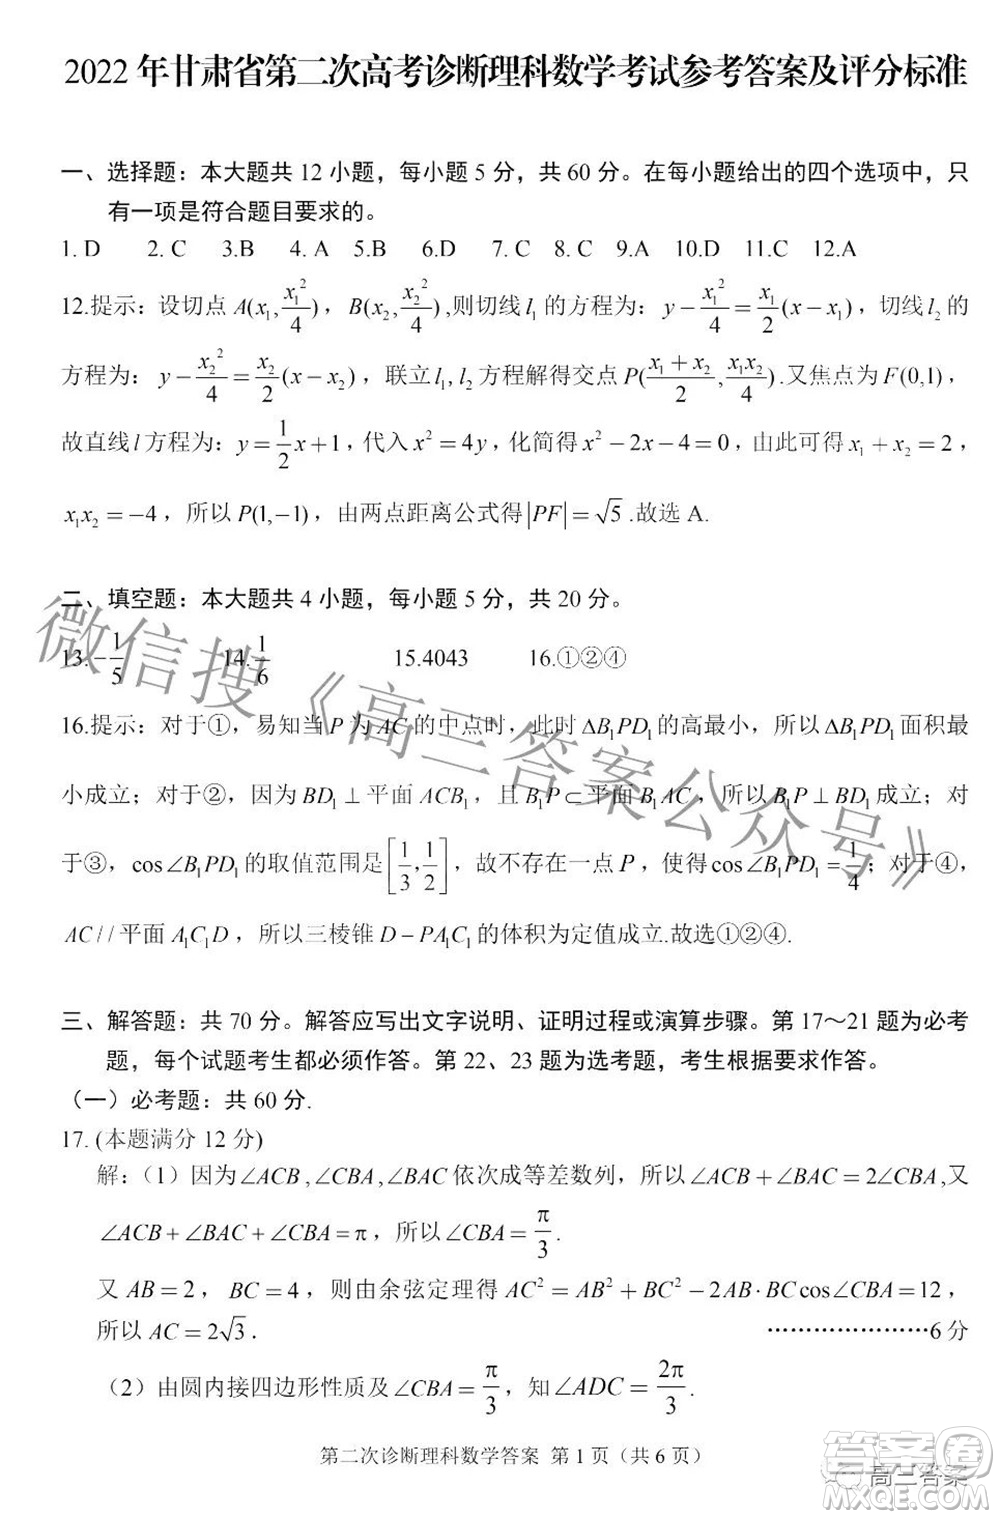 2022 年甘肃省第二次高考诊断理科数学考试参考答案及评分标准
一、选择题：本大题共 12 小题，每小题 5 分，共 60 分。在每小题给出的四个选项中，只
有一项是符合题目要求的。
1. D 2. C 3.B 4. A 5.B 6.D 7. C 8. C 9.A 10.D 11.C 12.A
12.提示：设切点 A(x₁, x₁²/4)，B(x₂, x₂²/4),则切线 l₁ 的方程为：y − x₁²/4 = x₁/2 (x − x₁)，切线 l₂ 的
方程为：y − x₂²/4 = x₂/2 (x − x₂)，联立 l₁, l₂ 方程解得交点 P((x₁ + x₂)/2, x₁x₂/4).又焦点为 F(0,1)，
故直线 l 方程为：y = 1/2 x + 1，代入 x² = 4y，化简得 x² − 2x − 4 = 0，由此可得 x₁ + x₂ = 2，
x₁x₂ = −4，所以 P(1,−1)，由两点距离公式得 |PF| = √5 .故选 A.
二、填空题：本大题共 4 小题，每小题 5 分，共 20 分。
13. −1/5 14. 1/6 15.4043 16.①②④
16.提示：对于①，易知当 P 为 AC 的中点时，此时 ΔB₁PD₁ 的高最小，所以 ΔB₁PD₁ 面积最
小成立；对于②，因为 BD₁ ⊥ 平面 ACB₁，且 B₁P ⊂ 平面 B₁AC，所以 B₁P ⊥ BD₁ 成立；对
于③，cos∠B₁PD₁ 的取值范围是 [1/3, 1/2]，故不存在一点 P，使得 cos∠B₁PD₁ = 1/4；对于④，
AC // 平面 A₁C₁D，所以三棱锥 D − PA₁C₁ 的体积为定值成立.故选①②④.
三、解答题：共 70 分。解答应写出文字说明、证明过程或演算步骤。第 17～21 题为必考
题，每个试题考生都必须作答。第 22、23 题为选考题，考生根据要求作答。
（一）必考题：共 60 分.
17. (本题满分 12 分)
解：（1）因为 ∠ACB , ∠CBA , ∠BAC 依次成等差数列，所以 ∠ACB + ∠BAC = 2∠CBA ,又
∠ACB + ∠BAC + ∠CBA = π，所以 ∠CBA = π/3 .
又 AB = 2， BC = 4，则由余弦定理得 AC² = AB² + BC² − 2AB · BC cos∠CBA = 12，
所以 AC = 2√3 . …………………6 分
（2）由圆内接四边形性质及 ∠CBA = π/3，知 ∠ADC = 2π/3 .
第二次诊断理科数学答案 第 1 页（共 6 页）
微信搜《高三答案公众号》
高三答案
答案圈
MXQE.COM